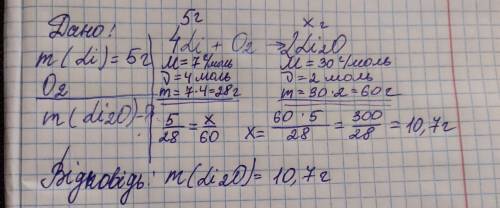 Дано:
m(Li)=5г
O2
m(Li2O)-?
5г x г
4Li + O2 → 2Li2O
M=7г/моль M=30г/моль
ν=4моль ν=2моль
m=7·4=28г m=30·2=60г
5/28 = x/60 x= 60·5/28 = 300/28 = 10,7г
Відповідь: m(Li2O)= 10,7г